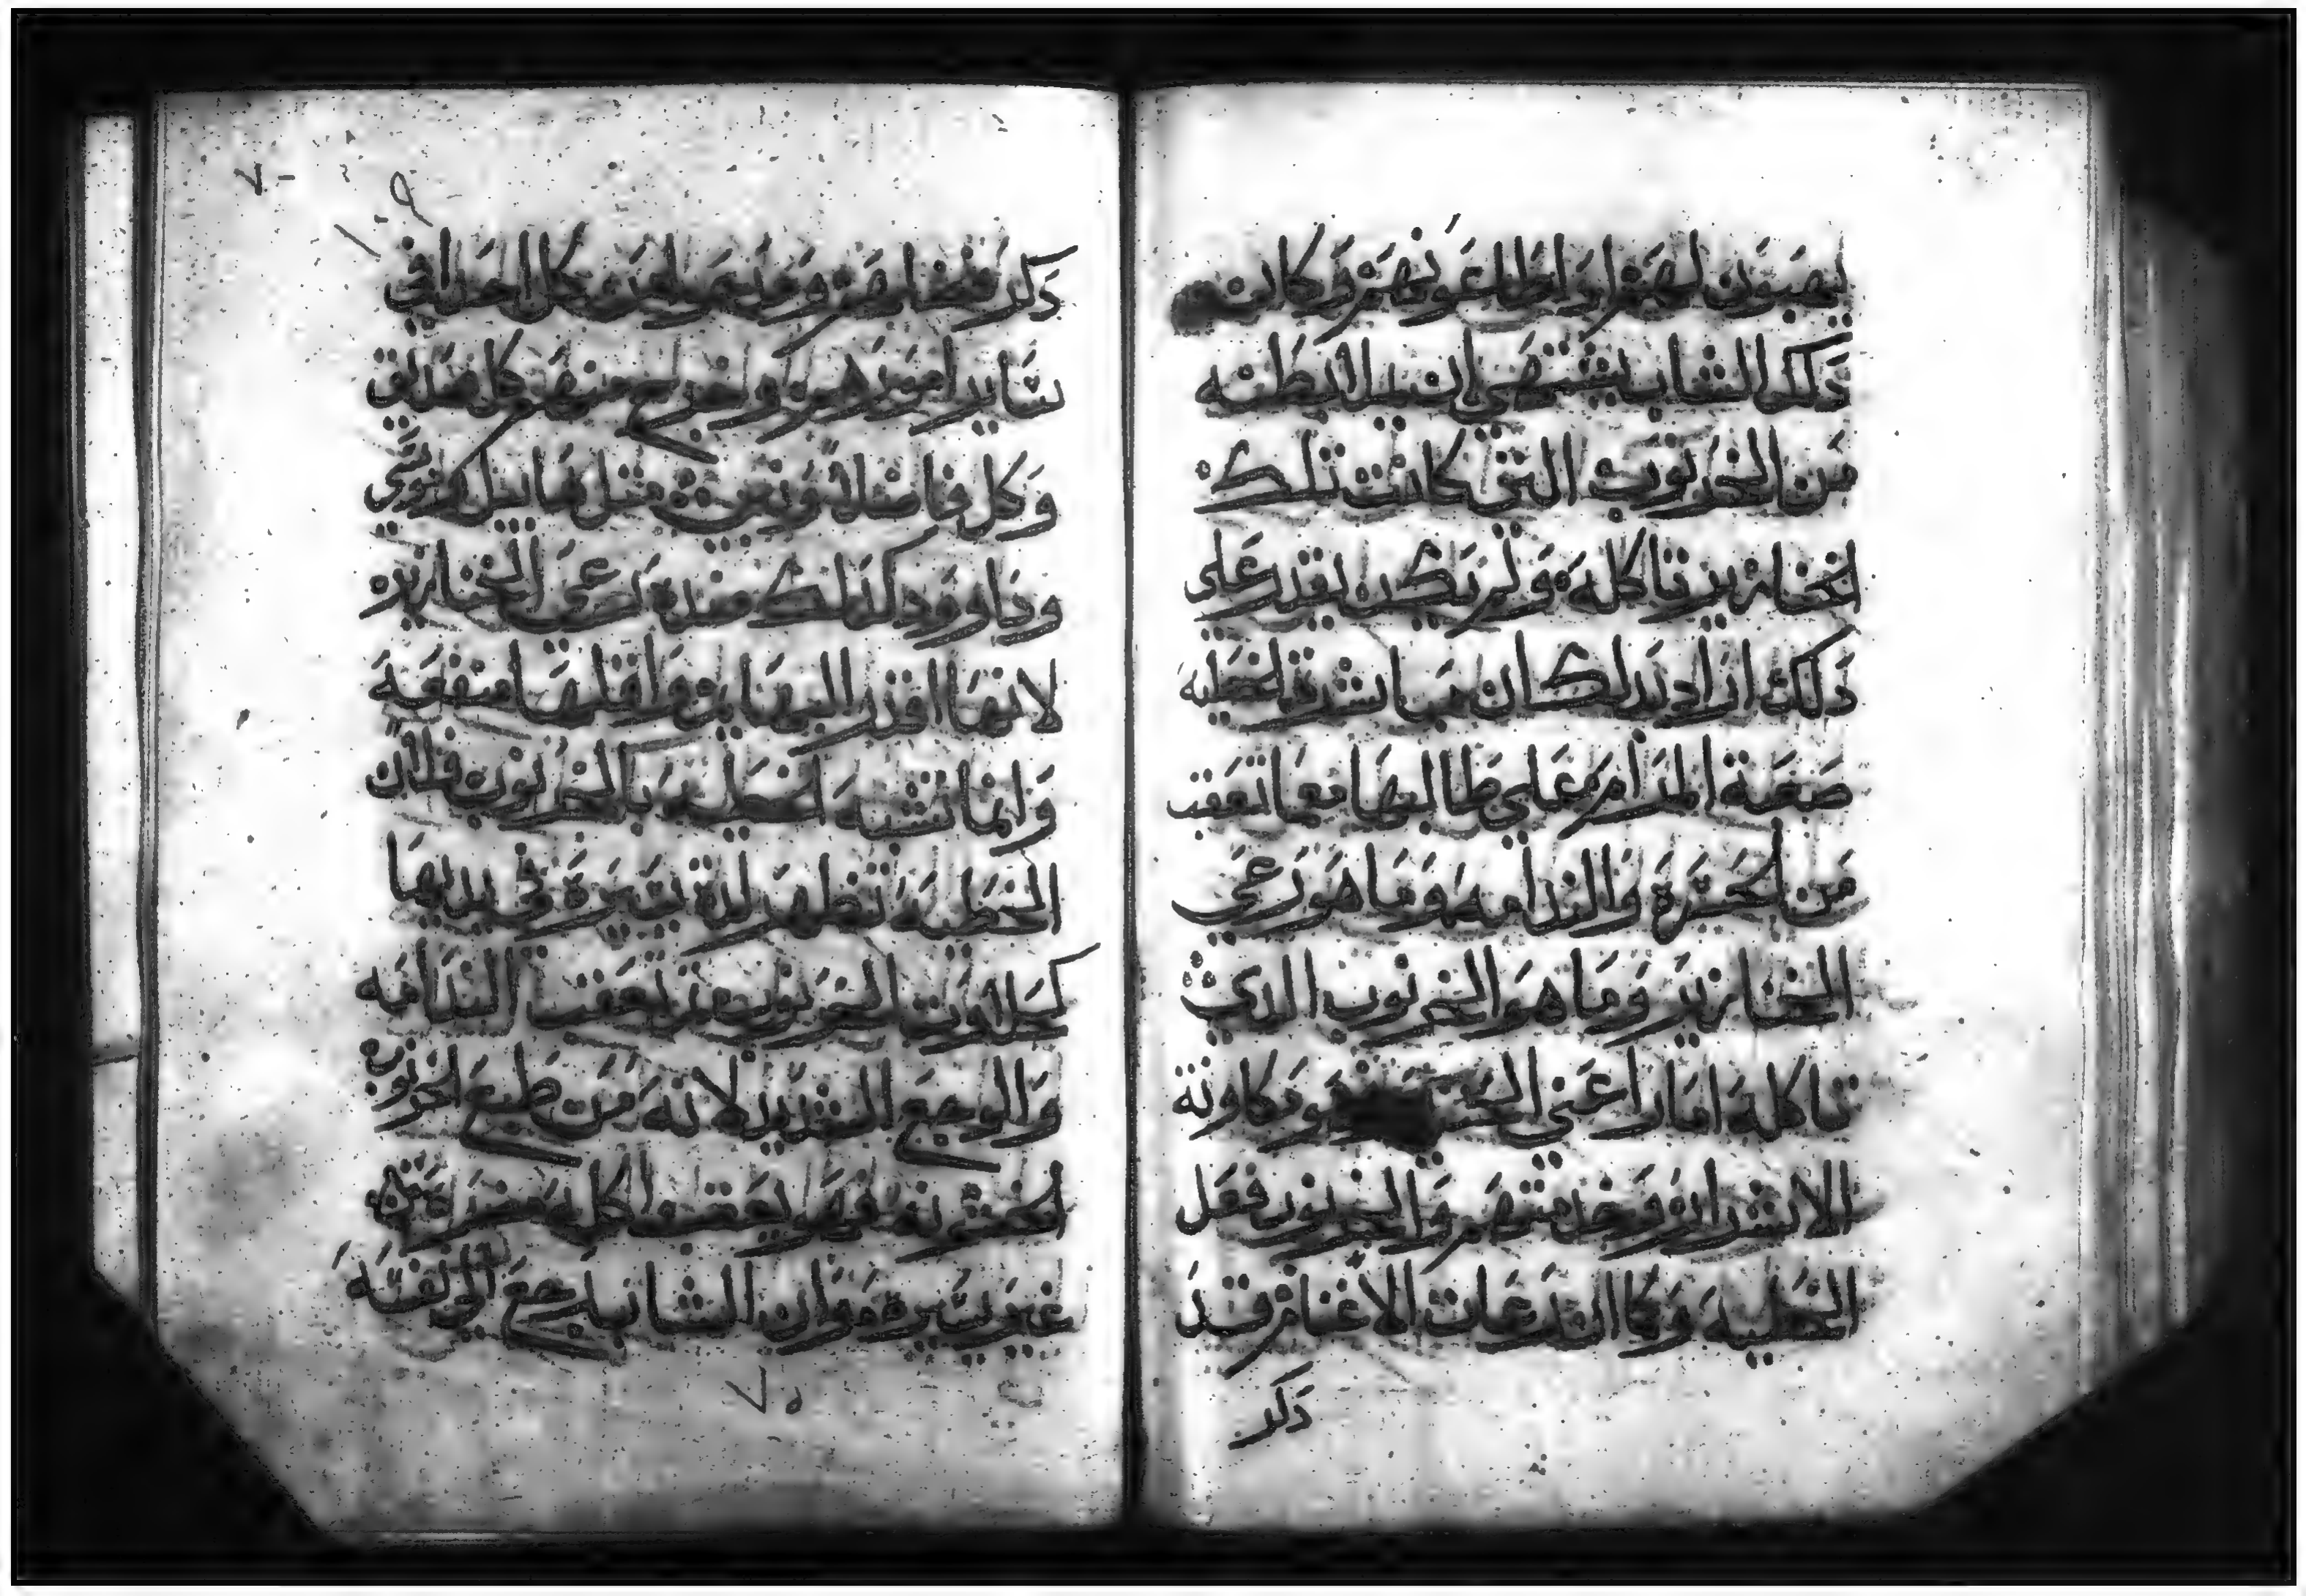 يصبون لهم اذ اطاعونهم وكان
ذلك الشاب يشتهي ان يملا بطنه
من الخرنوب التي كانت تلك
الخنازير تاكله ولم يكن يقدر على
ذلك اراد بذلك ان مباشرة الخطيه
صعبة المرام على طالبها مع ما تعقب
من الحسرة والندامه وما هو رعي
الخنازير وما هو الخرنوب الذي
تاكله امارا عني هو زكاوة
الاشرار وخدمتهم والخرنوب فعل
الخطيه وكما ان رعات الاغنام قد
ذكر
ذكر فضايلهم كل احد في
ساير امورهم وخرج منهم كل صديق
وكل فاضلا مثل هابيل وموسي
وداوود كذلك ضده رعي الخنازير
لانها اقذر البهايم واقلها منفعه
وانما تشبه الخطيه بالخرنوب فلان
الخطيه تظهر لذة يسيرة في يديها
كحلاوت الخرنوب ثم تعقب الندامه
والوجع الشديد لانه من طبع الخرنوب
الخشونه في اكله مضرة
غير يسيرة وان الشاب رجع الي نفسه